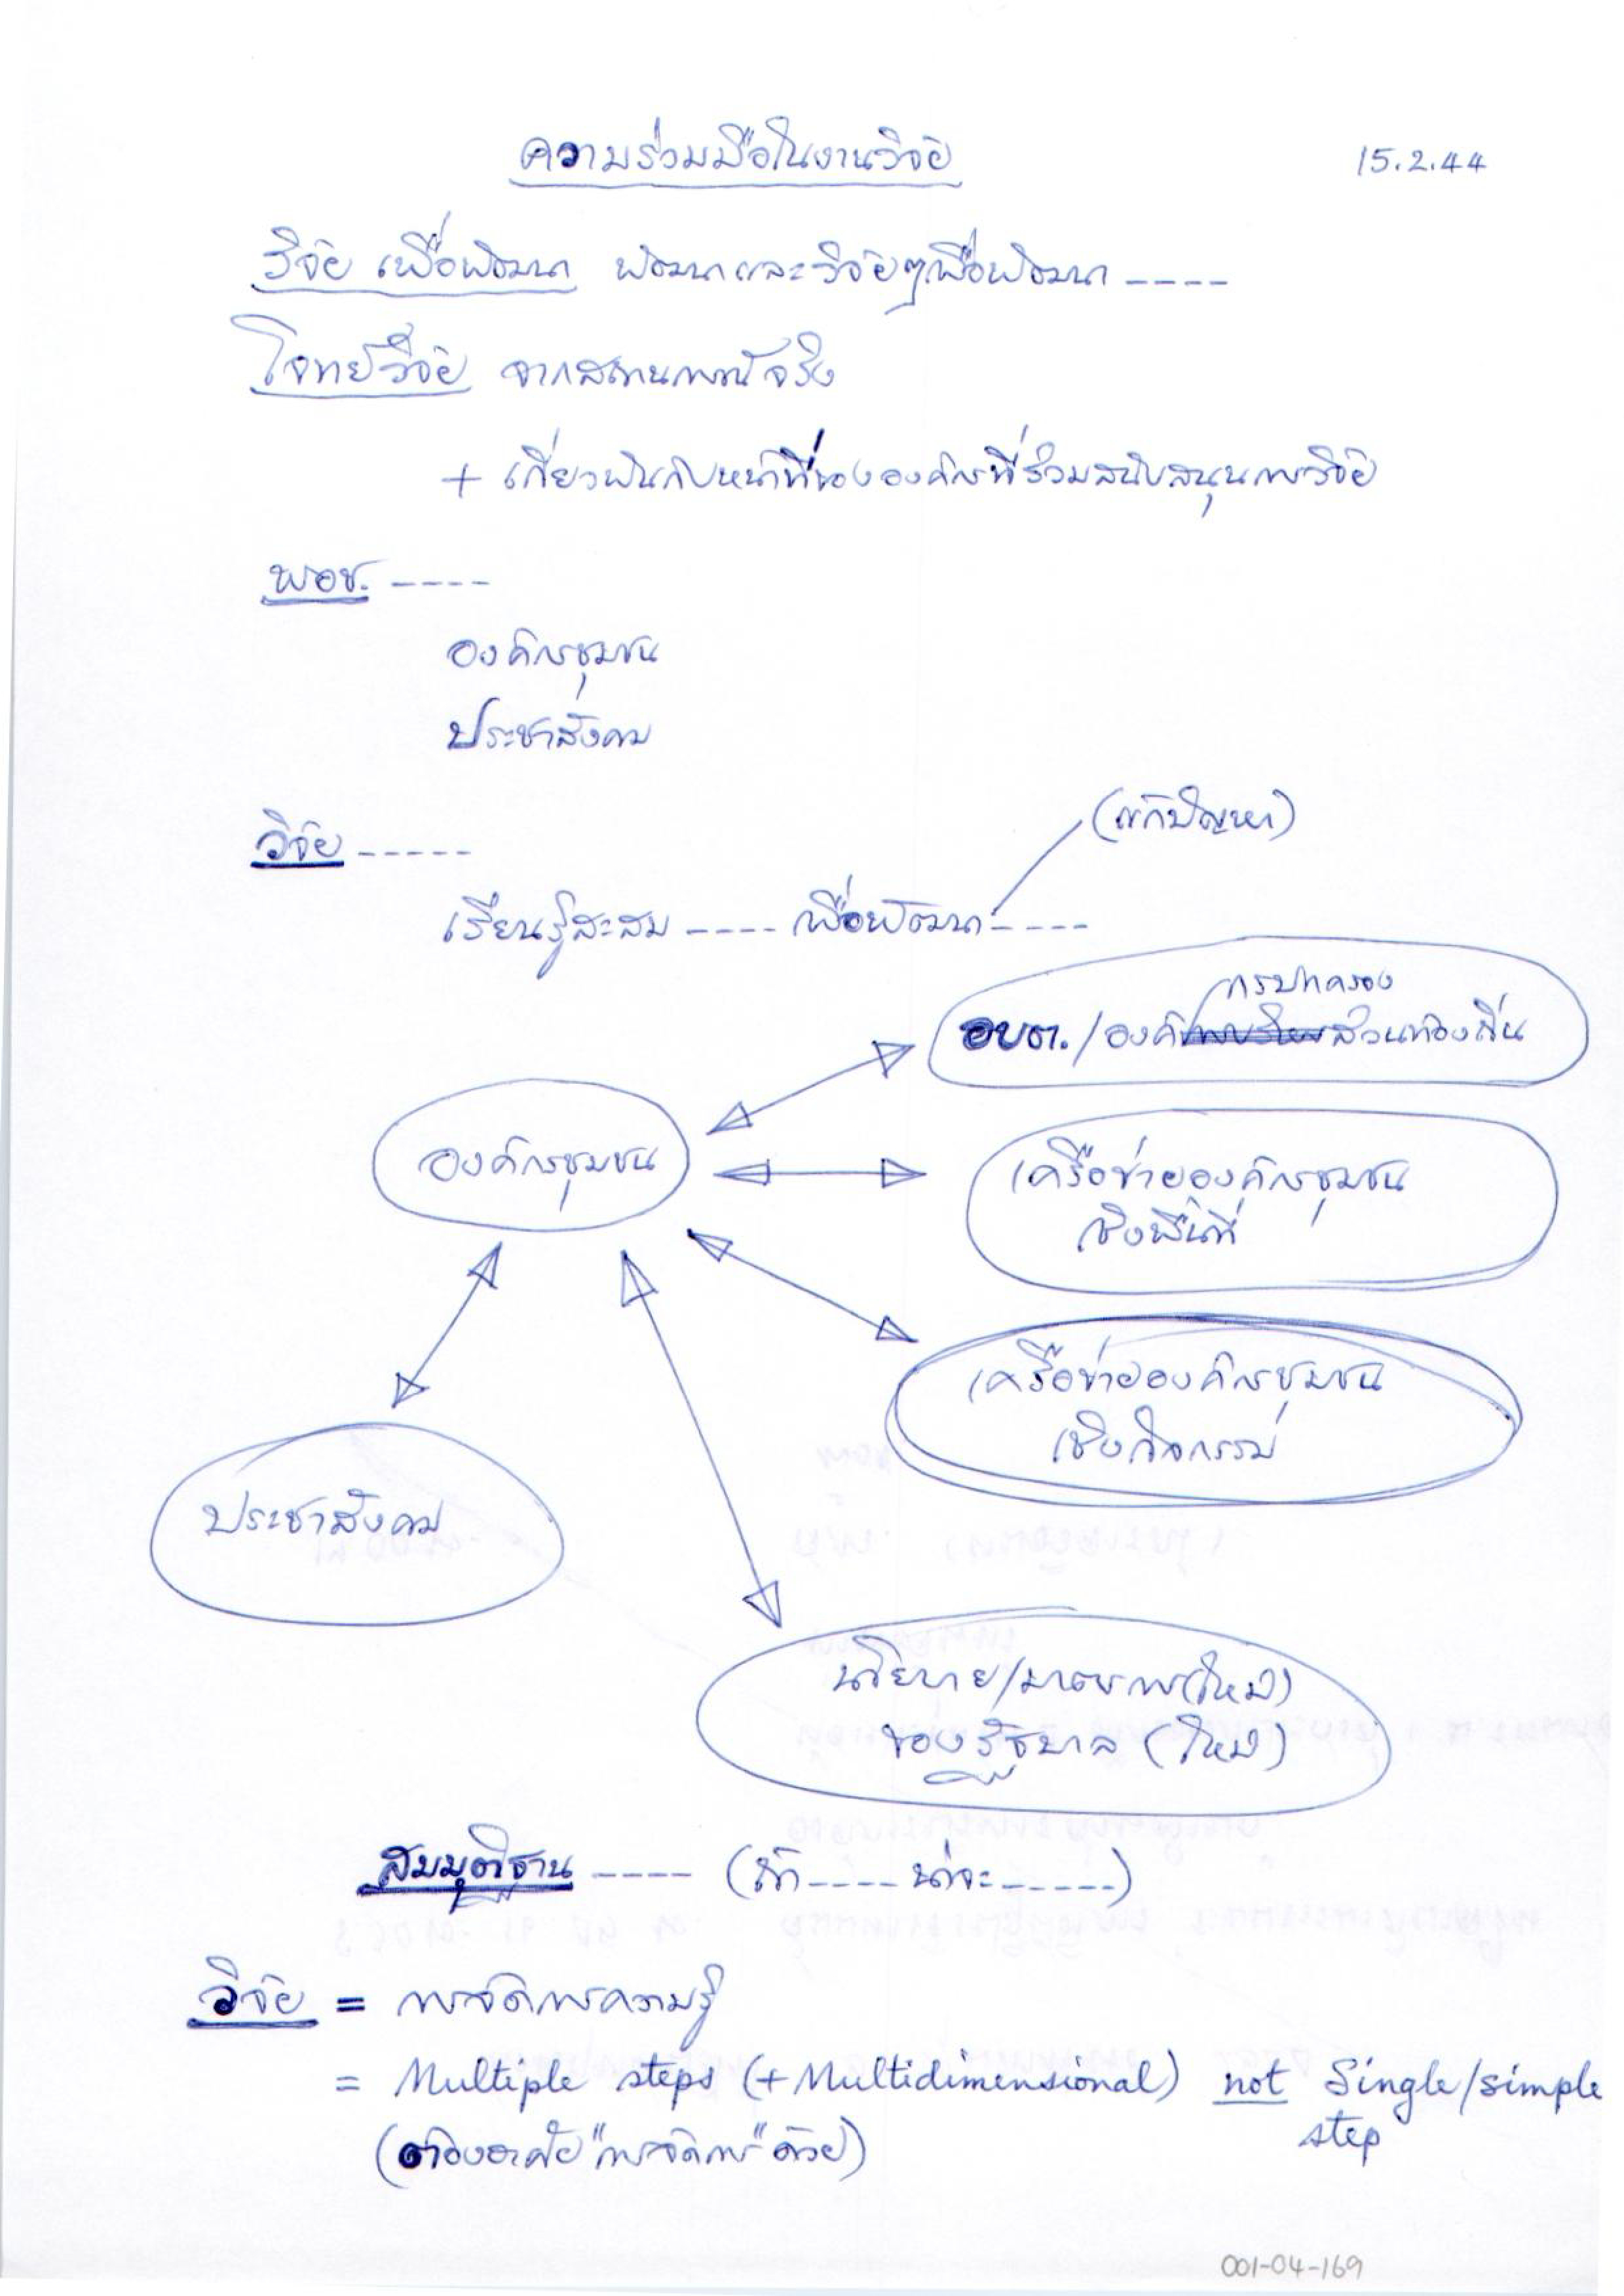 ความร่วมมือในงานวิจัย
15.2.44
วิจัย เพื่อพัฒนา พัฒนาและวิจัยๆเพื่อพัฒนา ----
โจทย์วิจัย จากสถานการณ์จริง
+ เกี่ยวพันกับหน้าที่ขององค์กรที่ร่วมสนับสนุนการวิจัย
พอช. ----
องค์กรชุมชน
ประชาสังคม
วิจัย -----
(แก้ปัญหา)
เรียนรู้สะสม ---- เพื่อพัฒนา ----
ปกครอง
อบต./องค์กรส่วนท้องถิ่น
องค์กรชุมชน
เครือข่ายองค์กรชุมชน
เชิงพื้นที่
เครือข่ายองค์กรชุมชน
เชิงกิจกรรม
ประชาสังคม
นโยบาย/มาตรการ(ใหม่)
ของรัฐบาล (ใหม่)
สมมุติฐาน ---- (ถ้า ---- น่าจะ -----)
วิจัย = การจัดการความรู้
= Multiple steps (+ Multidimensional) not Single/simple
step
(ต้องอาศัย "การจัดการ" ด้วย)
001-04-169